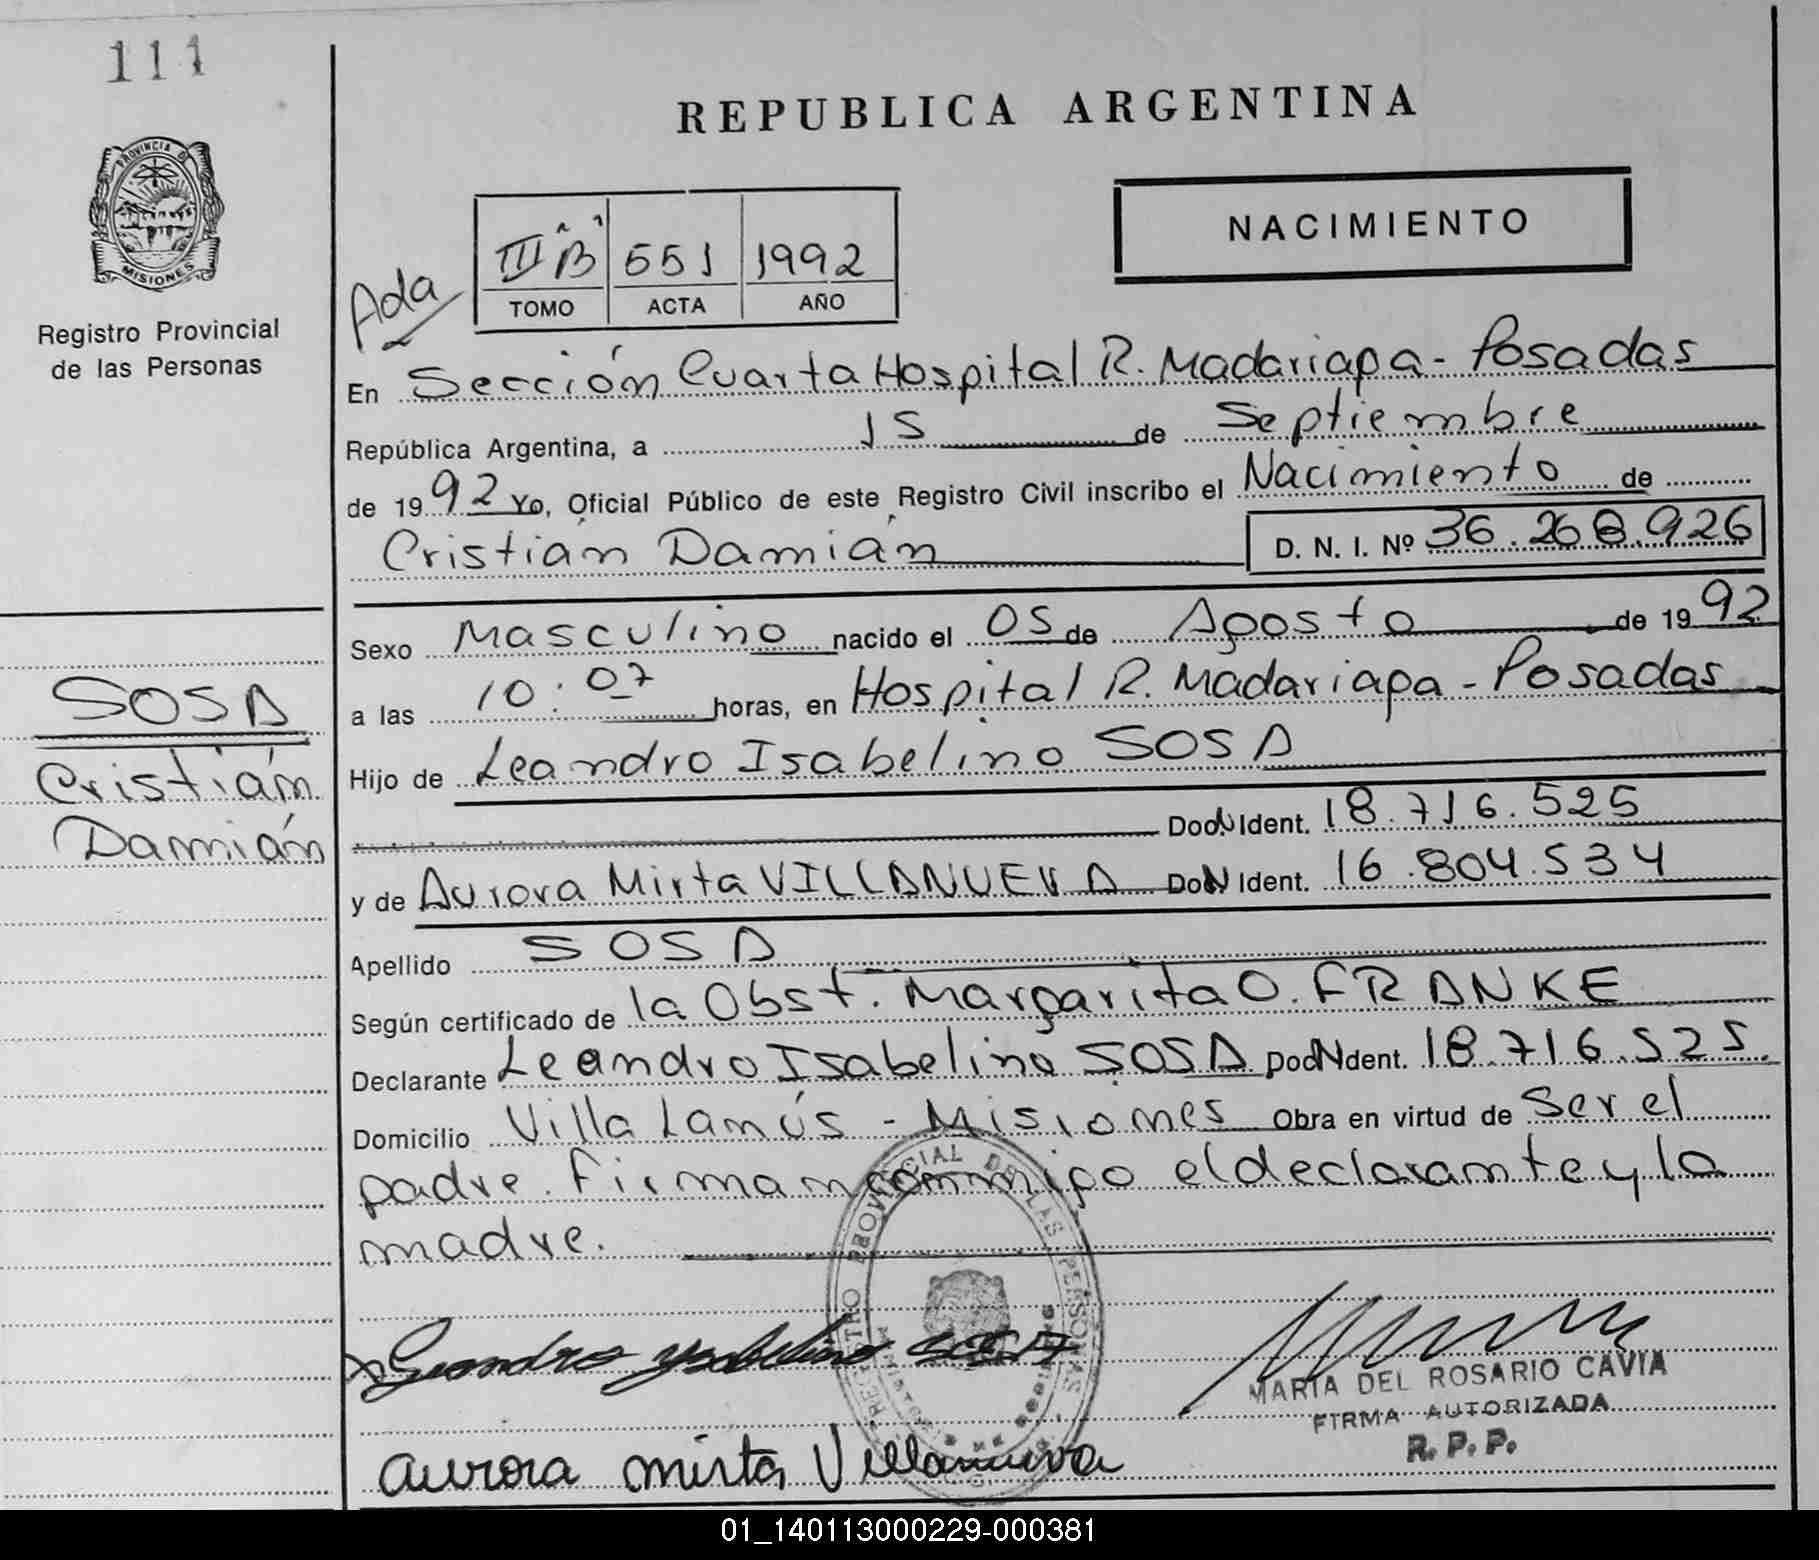 111
PROVINCIA DE
MISIONES
Registro Provincial
de las Personas
REPUBLICA ARGENTINA
NACIMIENTO
Ada
III "B" 551 1992
TOMO ACTA AÑO
En Sección Cuarta Hospital R. Madariaga - Posadas
República Argentina, a 15 de Septiembre
de 1992 Yo, Oficial Público de este Registro Civil inscribo el Nacimiento de
Cristián Damián D. N. I. Nº 36.268.926
Sexo Masculino nacido el 05 de Agosto de 1992
a las 10:07 horas, en Hospital R. Madariaga - Posadas
Hijo de Leandro Isabelino SOSA
Doc. Ident. 18.716.525
y de Aurora Mirta VILLANUEVA Doc. Ident. 16.804.534
Apellido SOSA
Según certificado de la Obst. Margarita O. FRANKE
Declarante Leandro Isabelino SOSA Doc. Ident. 18.716.525.
Domicilio Villa Lanús - Misiones Obra en virtud de Ser el
padre. Firman conmigo el declarante y la
madre.
SOSA
Cristián
Damián
REGISTRO PROVINCIAL DE LAS PERSONAS
MISIONES
Leandro Ysabelino SOSA
MARIA DEL ROSARIO CAVIA
FIRMA AUTORIZADA
R. P. P.
aurora mirta Villanueva
01_140113000229-000381